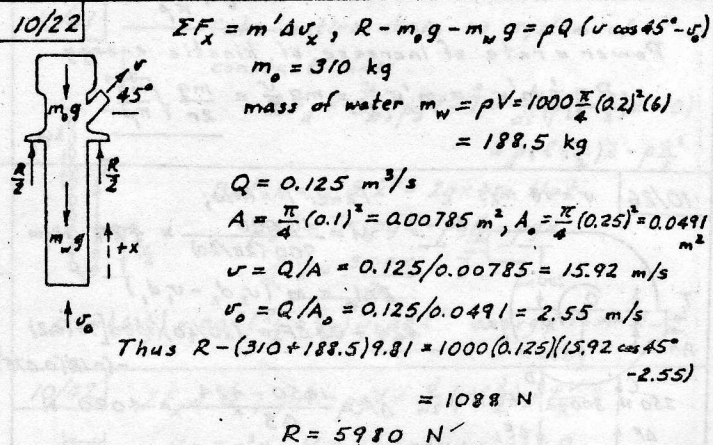 10/22
ΣF_x = m'Δv_x, R - m_o g - m_w g = ρQ (v cos 45° - v_o)
m_o = 310 kg
mass of water m_w = ρV = 1000 π/4 (0.2)²(6)
= 188.5 kg
v
45°
m_o g
R/2 R/2
m_w g
+x
v_o
Q = 0.125 m³/s
A = π/4 (0.1)² = 0.00785 m², A_o = π/4 (0.25)² = 0.0491 m²
v = Q/A = 0.125/0.00785 = 15.92 m/s
v_o = Q/A_o = 0.125/0.0491 = 2.55 m/s
Thus R - (310 + 188.5) 9.81 = 1000 (0.125)(15.92 cos 45°
-2.55)
= 1088 N
R = 5980 N